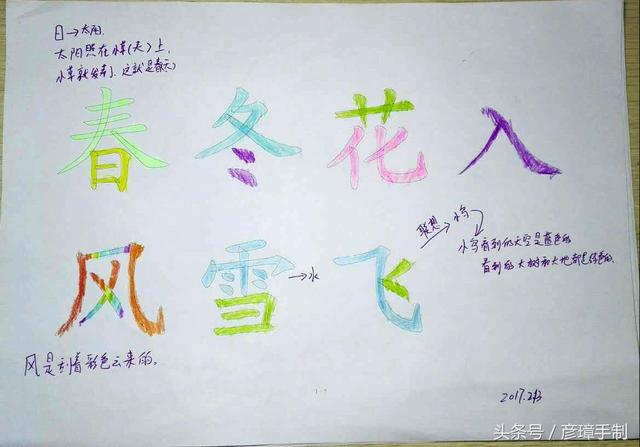 日→太阳.
太阳照在小草(夫)上,
小草就发芽,这就是春天
春 冬 花 入
联想 小鸟
小鸟看到的天空是蓝色的
看到的大树和大地都是绿色的.
风 雪→水 飞
风是刮着彩色云来的。
2017.
头条号/彦璋手制